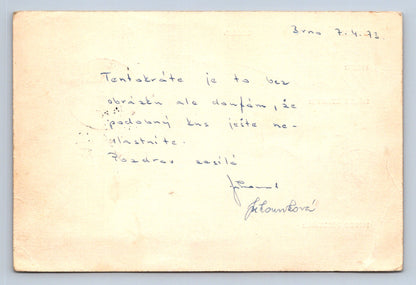 Brno 7.4.73.
Tentokráte je to bez
obrázku ale doufám, že
podobný kus ještě ne-
vlastníte.
Pozdrav zasílá